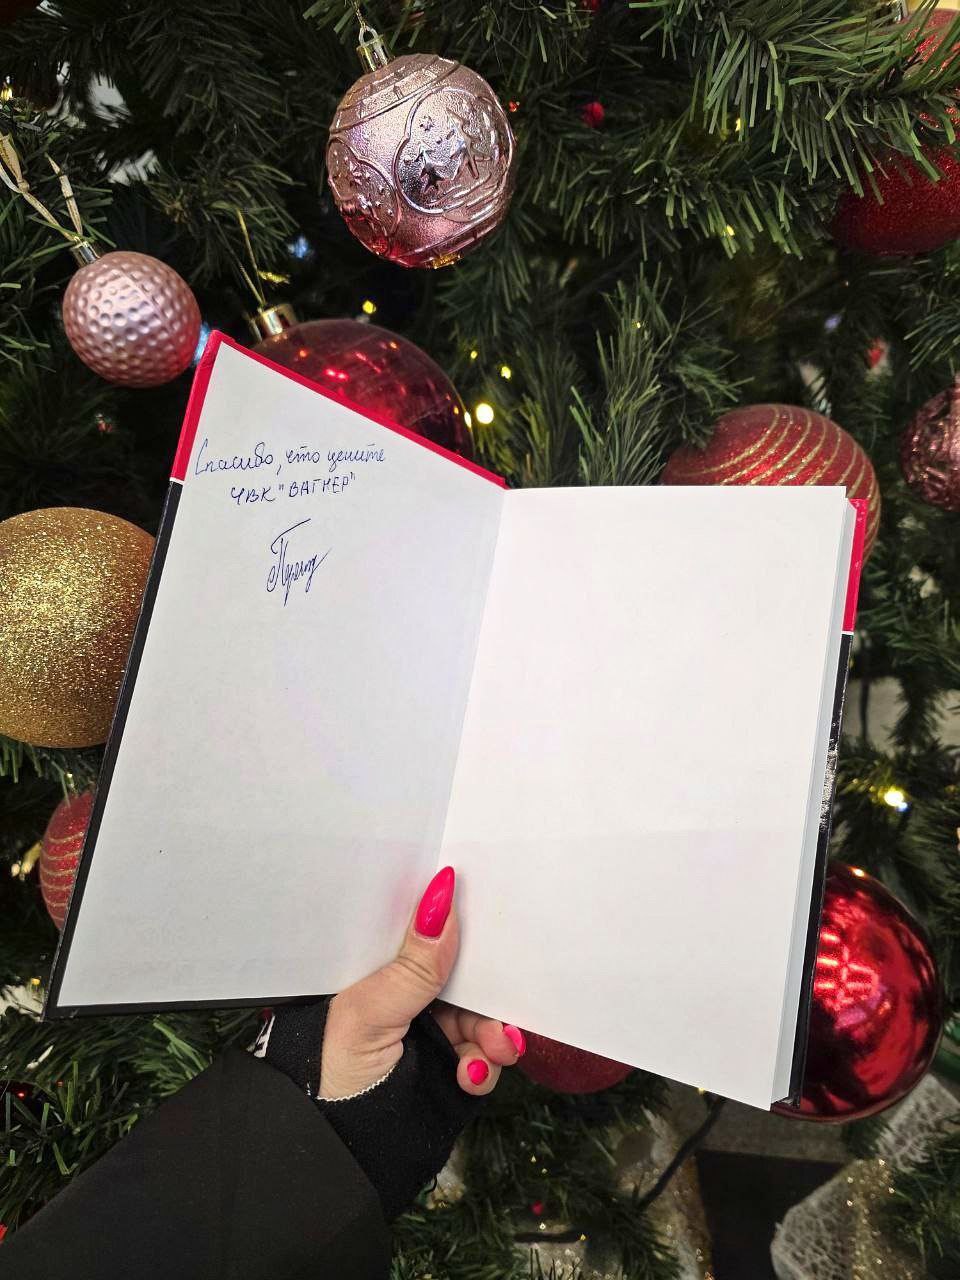 Спасибо, что цените
ЧВК "ВАГНЕР"